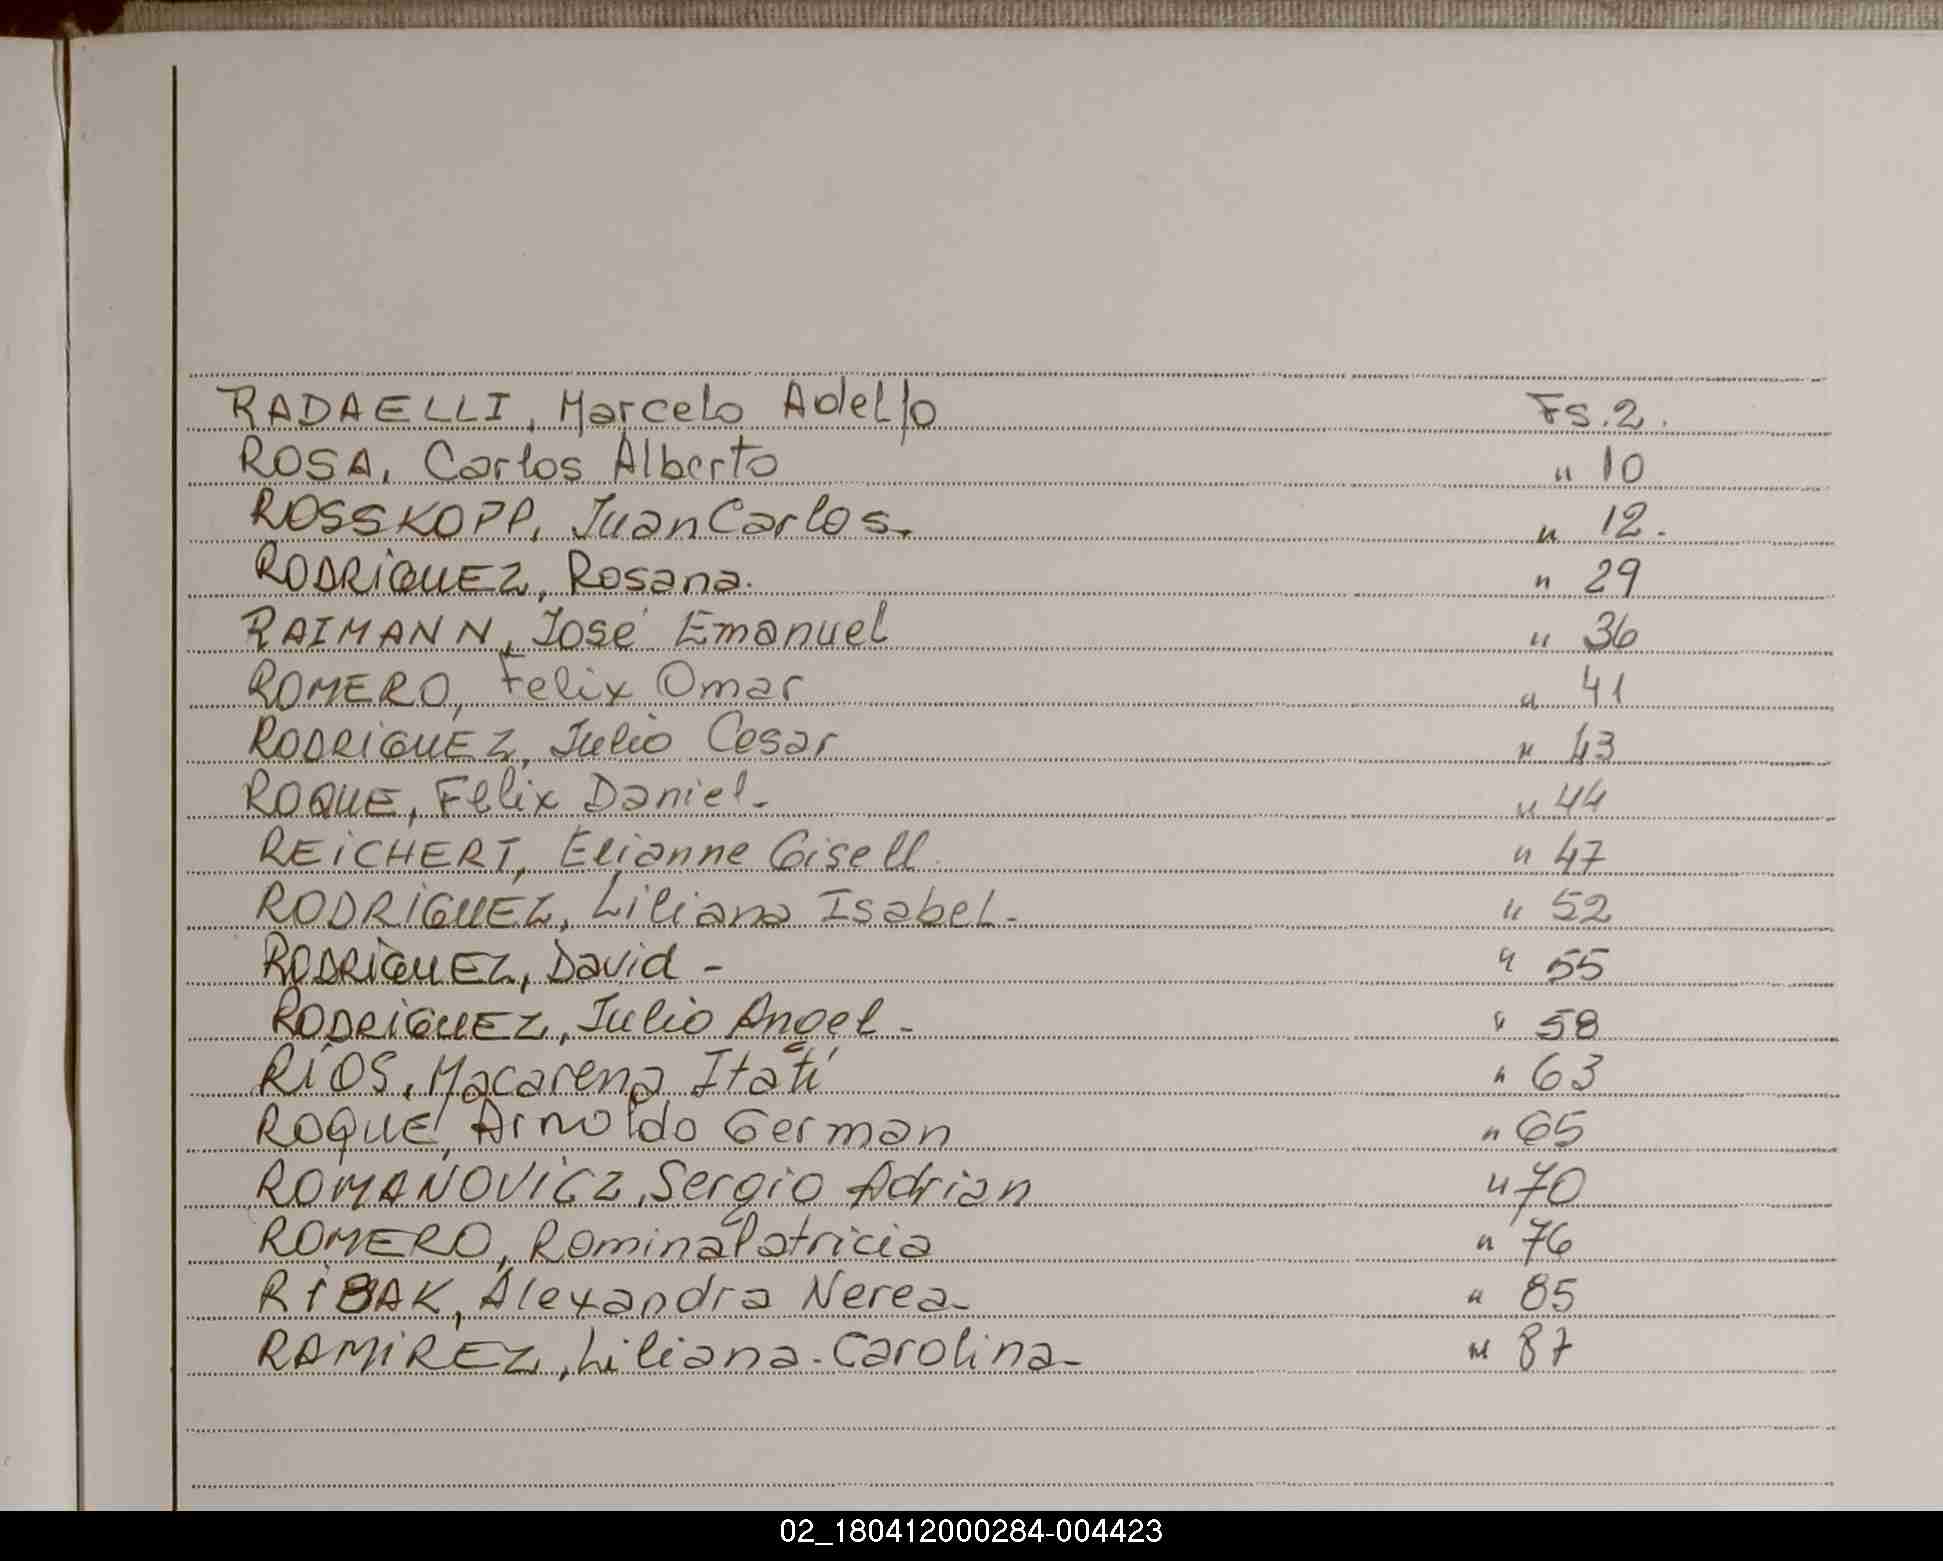 RADAELLI, Marcelo Adelfo Fs. 2.
ROSA, Carlos Alberto " 10
ROSSKOPP, Juan Carlos. " 12.
RODRiGUEZ, Rosana. " 29
RAIMANN, José Emanuel " 36
ROMERO, Felix Omar " 41
RODRiGUEZ, Julio Cesar " 43
ROQUE, Félix Daniel- " 44
REiCHERT, Elianne Gisell. " 47
RODRiGUEZ, Liliana Isabel- " 52
RODRiGUEZ, David - " 55
RODRiGUEZ, Julio Angel - " 58
RiOS, Macarena Itatí " 63
ROQUE, Arnoldo German " 65
ROMANOViCZ, Sergio Adrian " 70
ROMERO, Romina Patricia " 76
RIBAK, Alexandra Nerea- " 85
RAMiREZ, Liliana Carolina- " 87
02_180412000284-004423